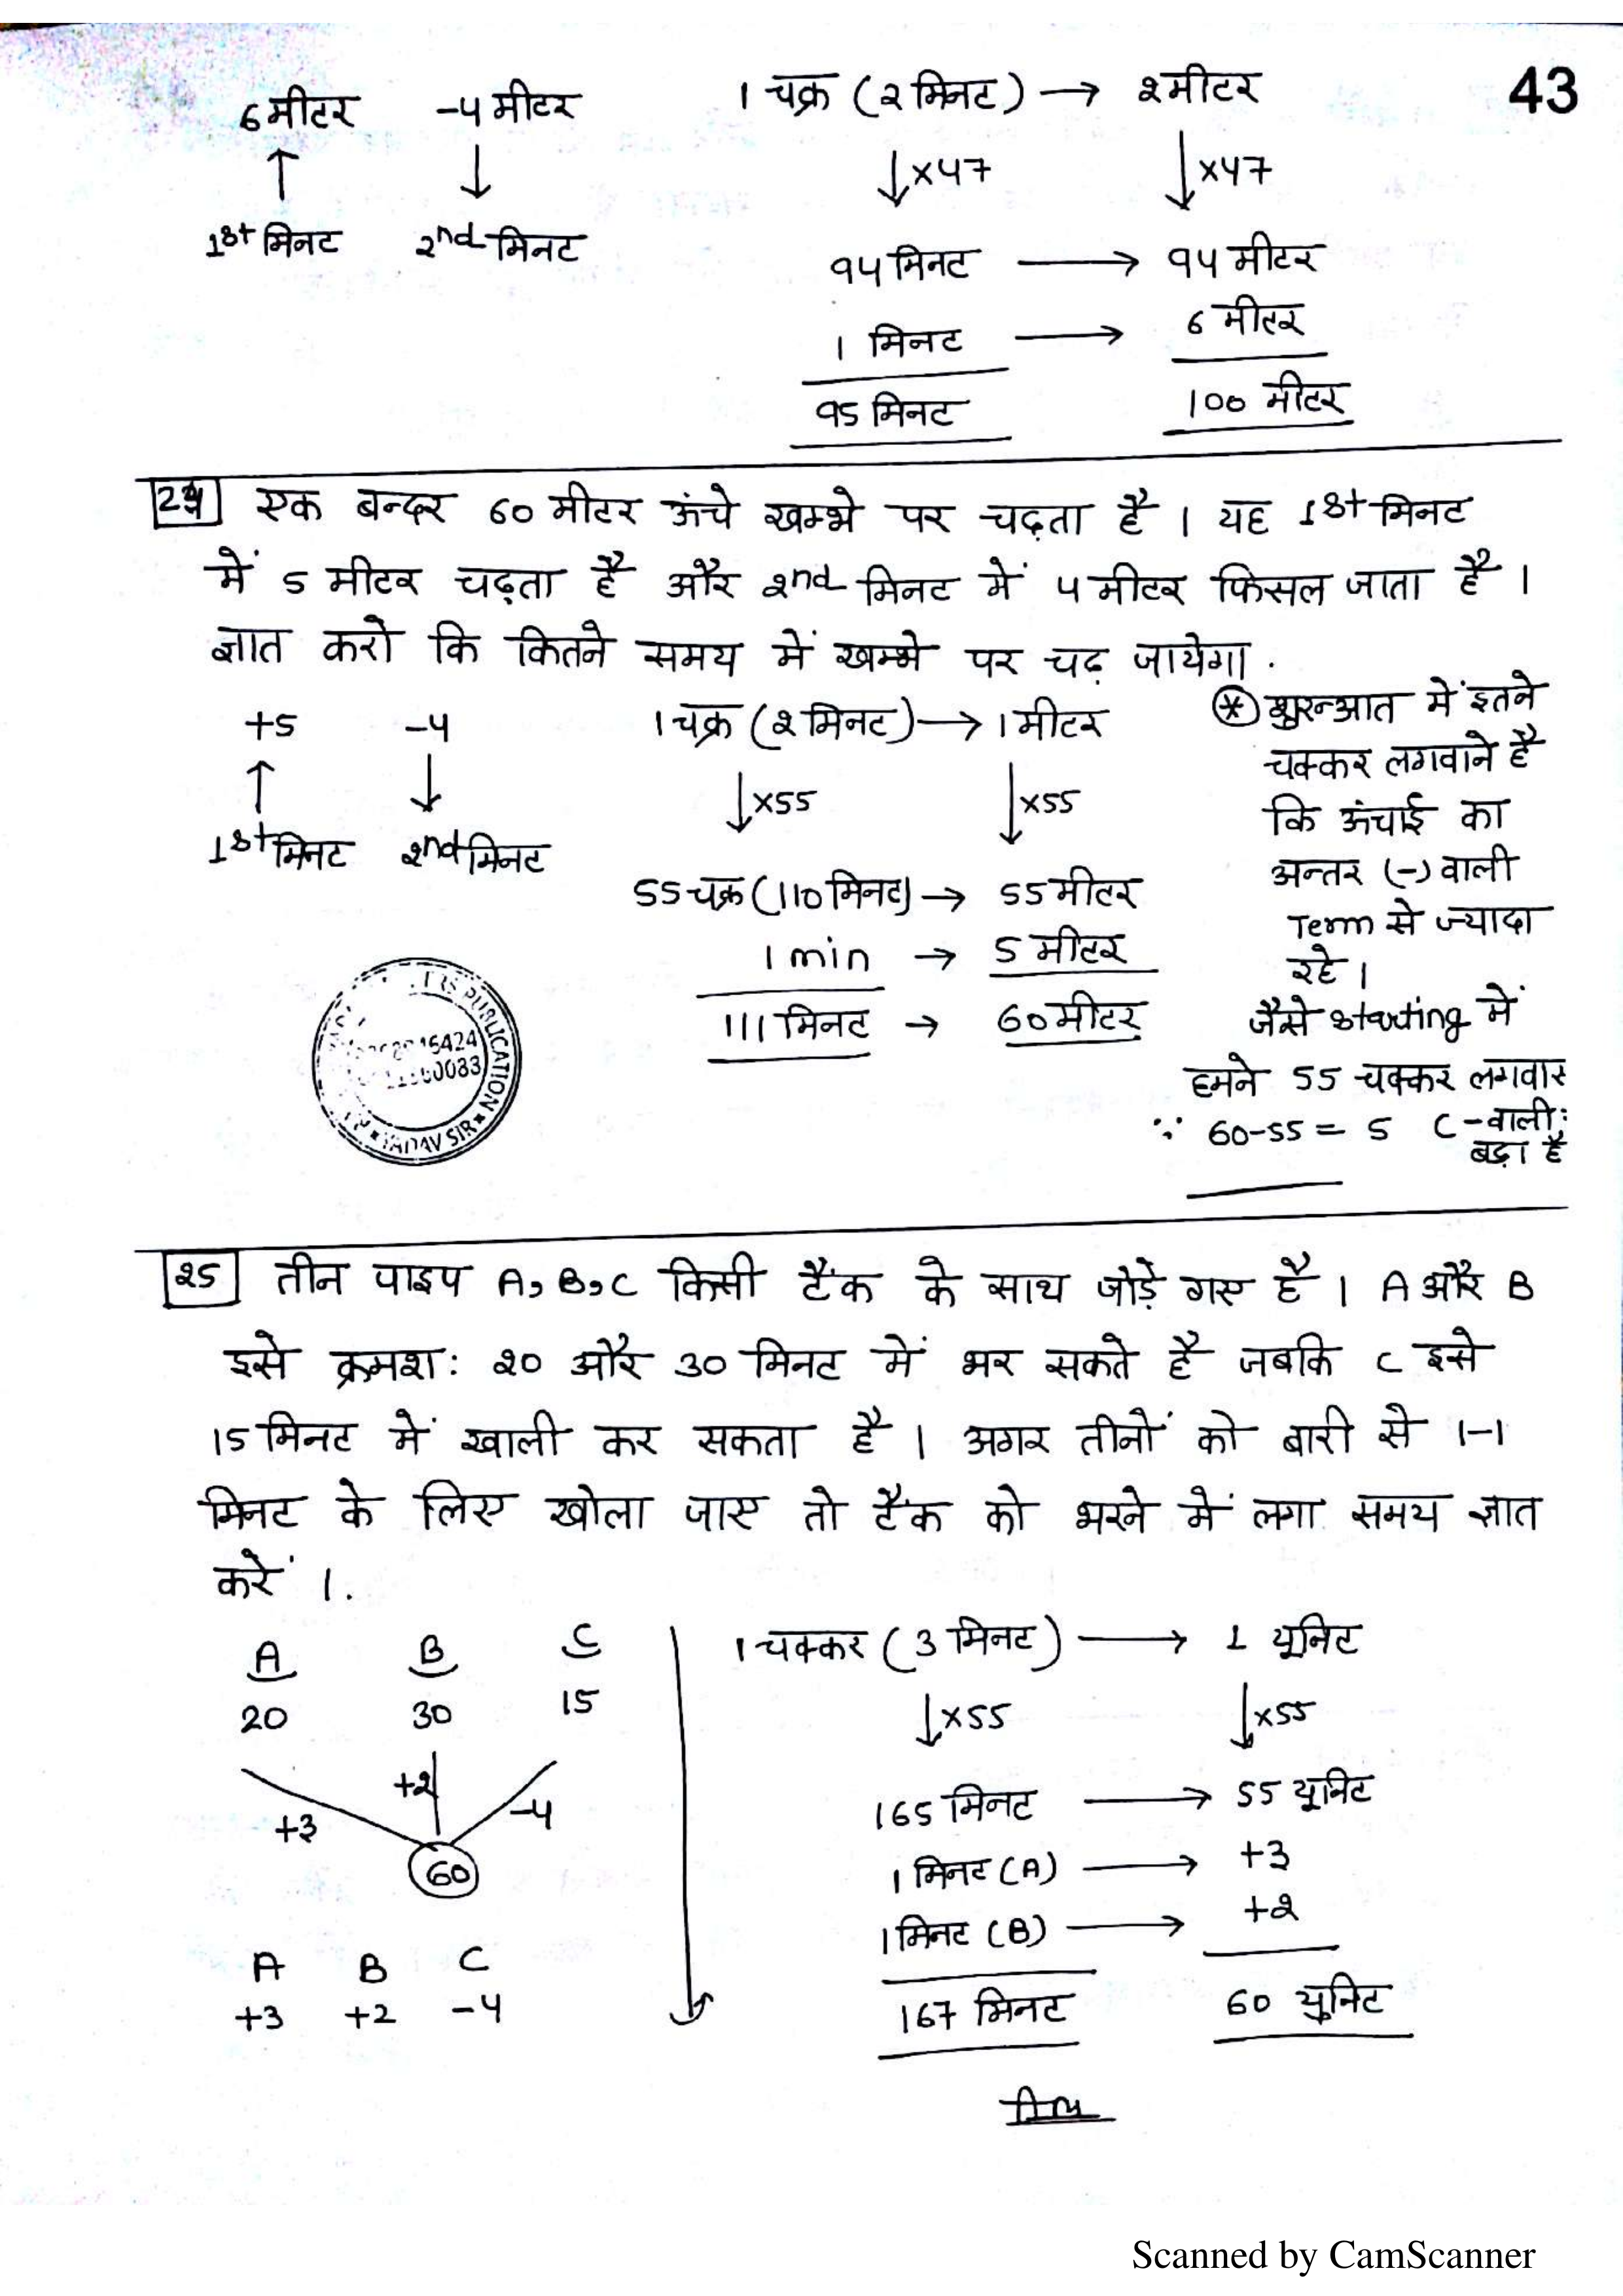 43
6 मीटर -4 मीटर
↑ ↓
1st मिनट 2nd मिनट
1 चक्र (2 मिनट) → 2 मीटर
↓×47 ↓×47
94 मिनट → 94 मीटर
1 मिनट → 6 मीटर
95 मिनट 100 मीटर
24 एक बन्दर 60 मीटर ऊंचे खम्भे पर चढ़ता है । यह 1st मिनट
में 5 मीटर चढ़ता है और 2nd मिनट में 4 मीटर फिसल जाता है ।
ज्ञात करो कि कितने समय में खम्भे पर चढ़ जायेगा .
+5 -4
↑ ↓
1st मिनट 2nd मिनट
1 चक्र (2 मिनट) → 1 मीटर
↓×55 ↓×55
55 चक्र (110 मिनट) → 55 मीटर
1 min → 5 मीटर
111 मिनट → 60 मीटर
* शुरुआत में इतने
चक्कर लगवाने है
कि ऊंचाई का
अन्तर (-) वाली
Term से ज्यादा
रहे ।
जैसे starting में
हमने 55 चक्कर लगवाए
∵ 60-55 = 5 (-वाली
बड़ा है
PUBLICATION
YADAV SIR
25 तीन पाइप A, B, C किसी टैंक के साथ जोड़े गए है । A और B
इसे क्रमशः 20 और 30 मिनट में भर सकते है जबकि C इसे
15 मिनट में खाली कर सकता है । अगर तीनों को बारी से 1-1
मिनट के लिए खोला जाए तो टैंक को भरने में लगा समय ज्ञात
करें ।.
A B C
20 30 15
+3 +2 -4
60
A B C
+3 +2 -4
1 चक्कर (3 मिनट) → 1 यूनिट
↓×55 ↓×55
165 मिनट → 55 यूनिट
1 मिनट (A) → +3
1 मिनट (B) → +2
167 मिनट 60 यूनिट
Scanned by CamScanner